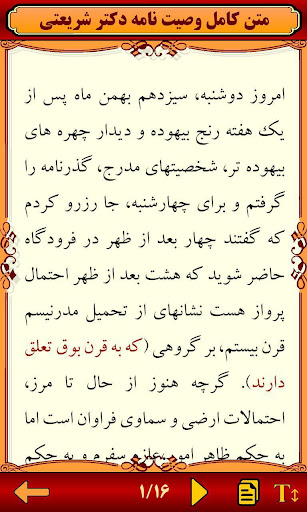 متن کامل وصیت نامه دکتر شریعتی
امروز دوشنبه، سیزدهم بهمن ماه پس از
یک هفته رنج بیهوده و دیدار چهره های
بیهوده تر، شخصیتهای مدرج، گذرنامه را
گرفتم و برای چهارشنبه، جا رزرو کردم
که گفتند چهار بعد از ظهر در فرودگاه
حاضر شوید که هشت بعد از ظهر احتمال
پرواز هست نشانهای از تحمیل مدرنیسم
قرن بیستم، بر گروهی (که به قرن بوق تعلق
دارند). گرچه هنوز از حال تا مرز،
احتمالات ارضی و سماوی فراوان است اما
به حکم ظاهر امور، عازم سفرم و به حکم
۱/۱۶
T